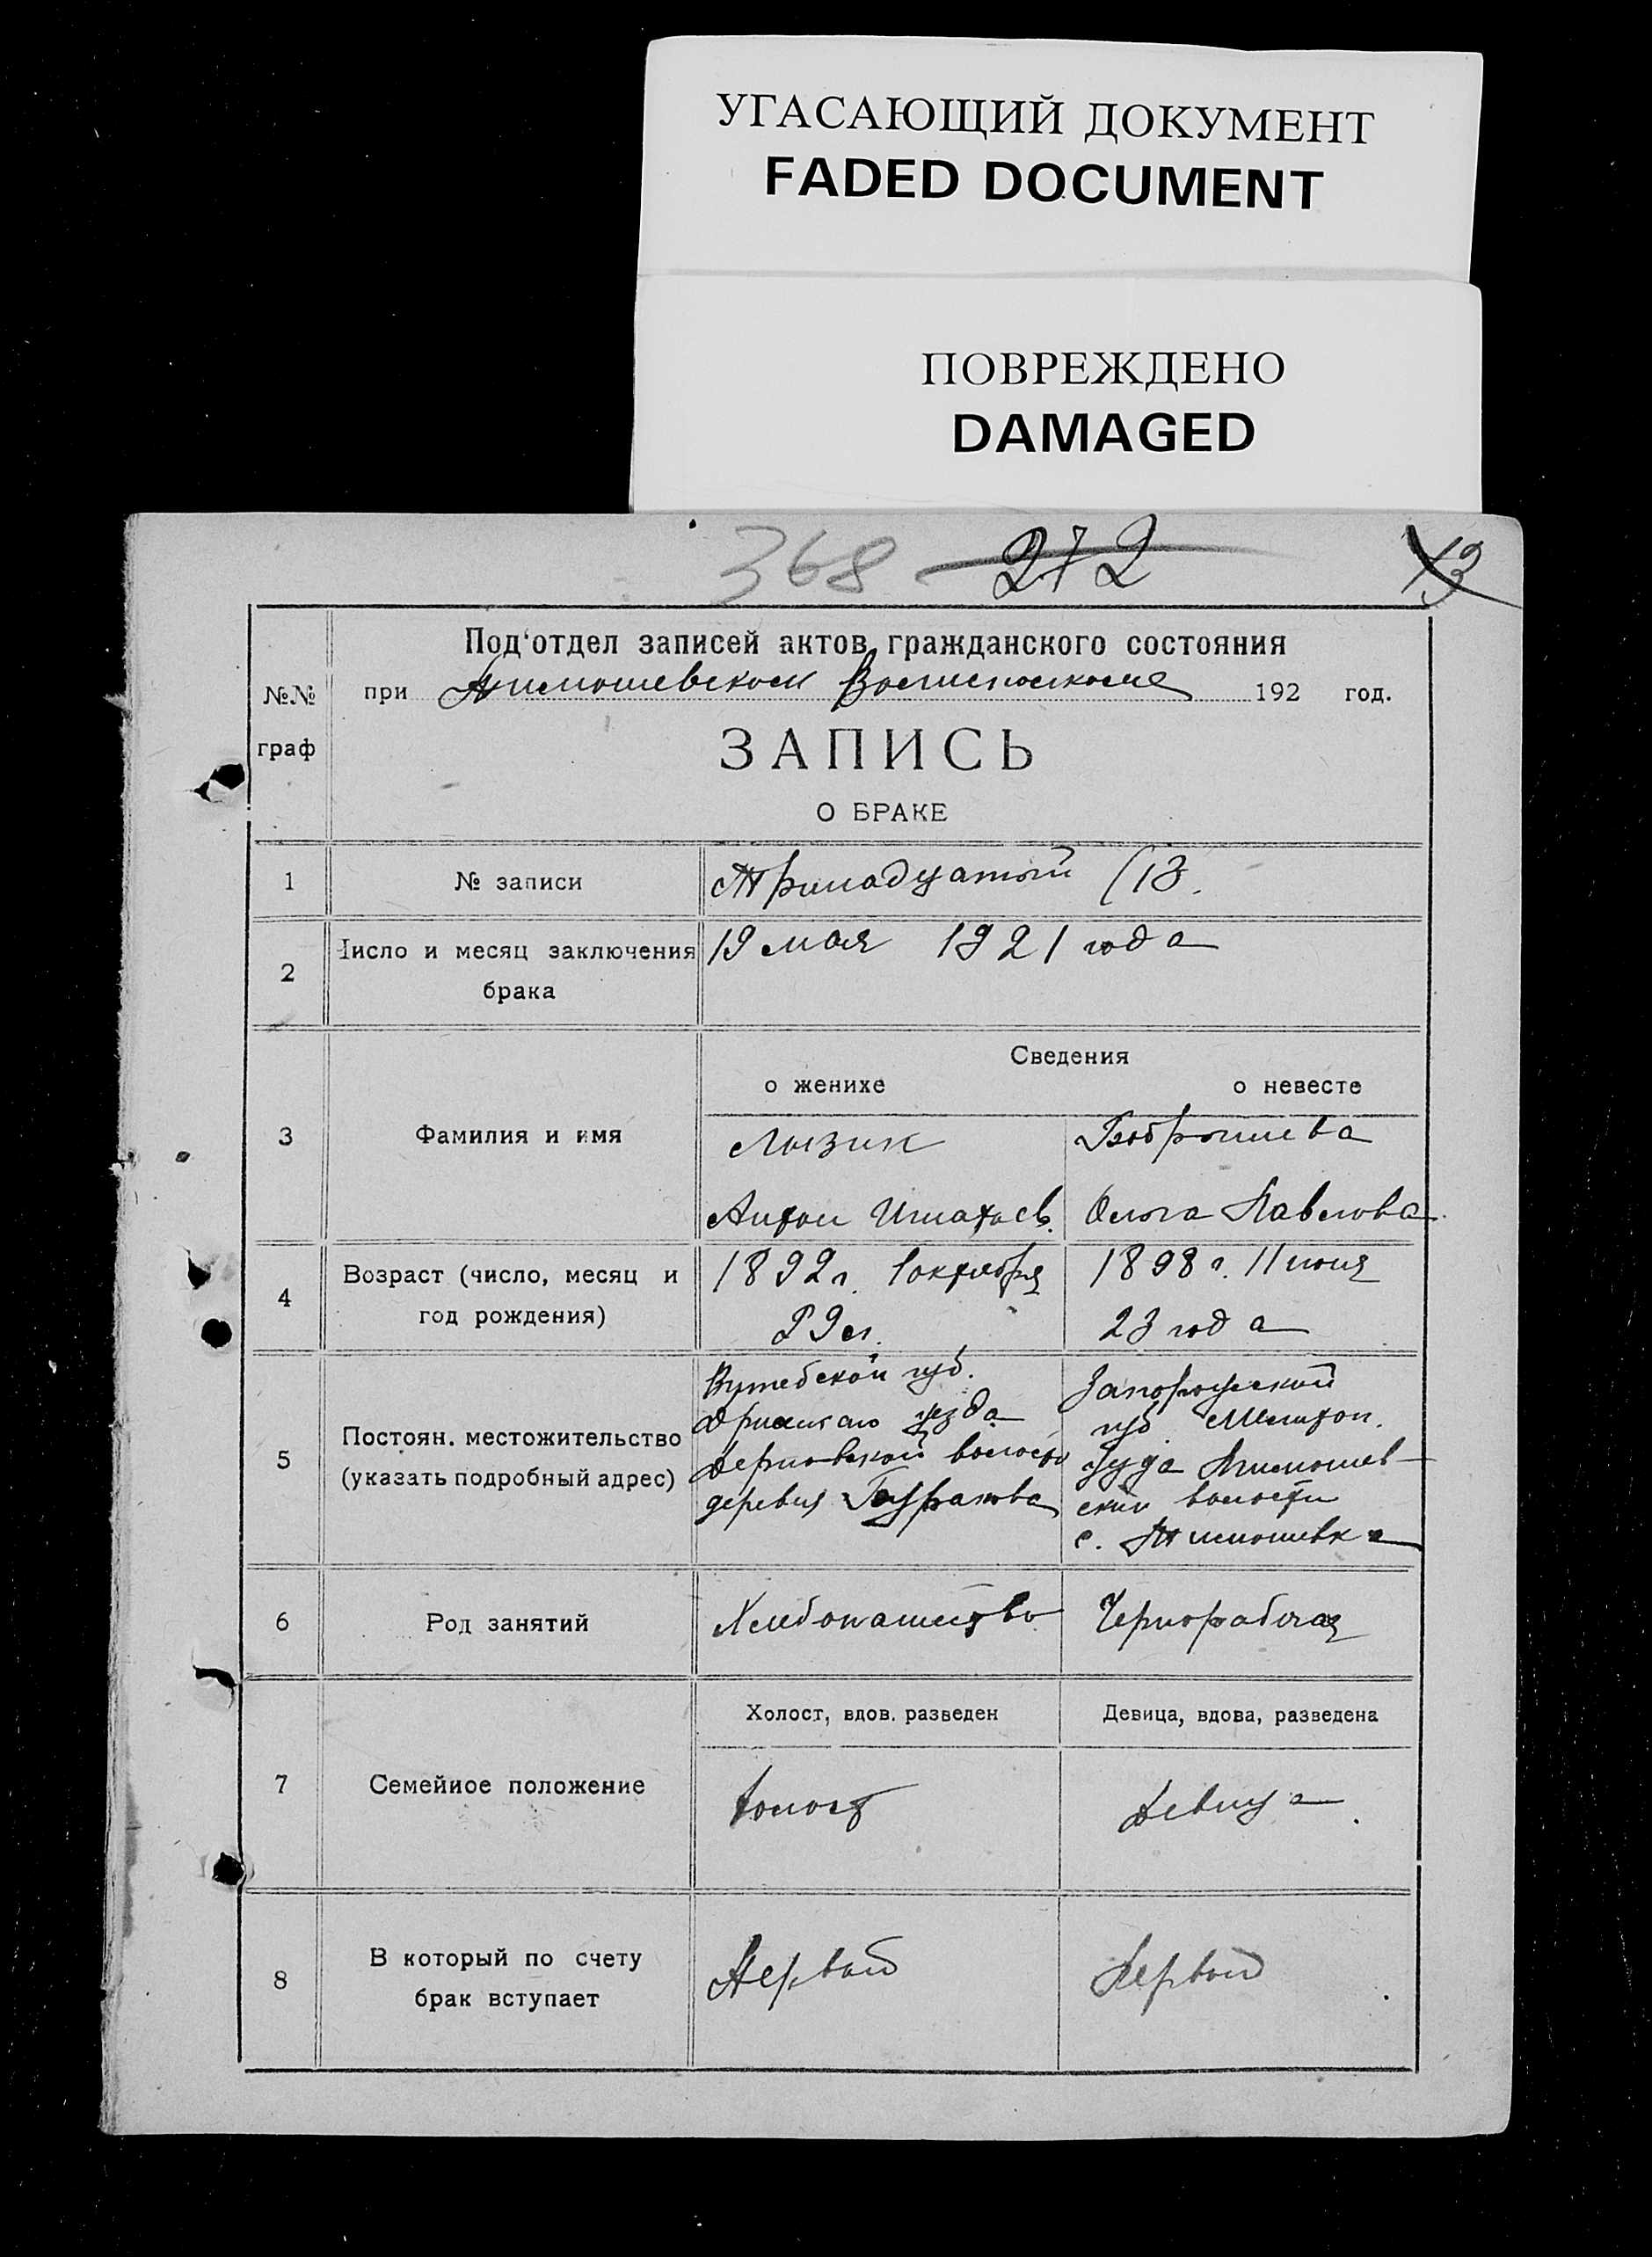 УГАСАЮЩИЙ ДОКУМЕНТ
FADED DOCUMENT
ПОВРЕЖДЕНО
DAMAGED
368 272 13
Под'отдел записей актов гражданского состояния
№№ граф
при Тимошевском Волисполкоме 192 год.
ЗАПИСЬ
О БРАКЕ
1 № записи Тринадцатый (13.
2 Число и месяц заключения брака 19 мая 1921 года
Сведения
о женихе о невесте
3 Фамилия и имя
Лызик
Антон Игнатьев.
Ольга Павлова
4 Возраст (число, месяц и год рождения)
1892 г. 1 октября
29 л.
1898 г. 11 июня
23 года
5 Постоян. местожительство (указать подробный адрес)
Витебской губ.
уезда
волости
деревня
Запорожской
губ. Мелитоп.
уезда Тимошев-
ской волости
с. Тимошевка
6 Род занятий
Хлебопашество
Чернорабочая
7 Семейное положение
Холост, вдов. разведен
Девица, вдова, разведена
Холост
Девица
8 В который по счету брак вступает
Первый
Первый